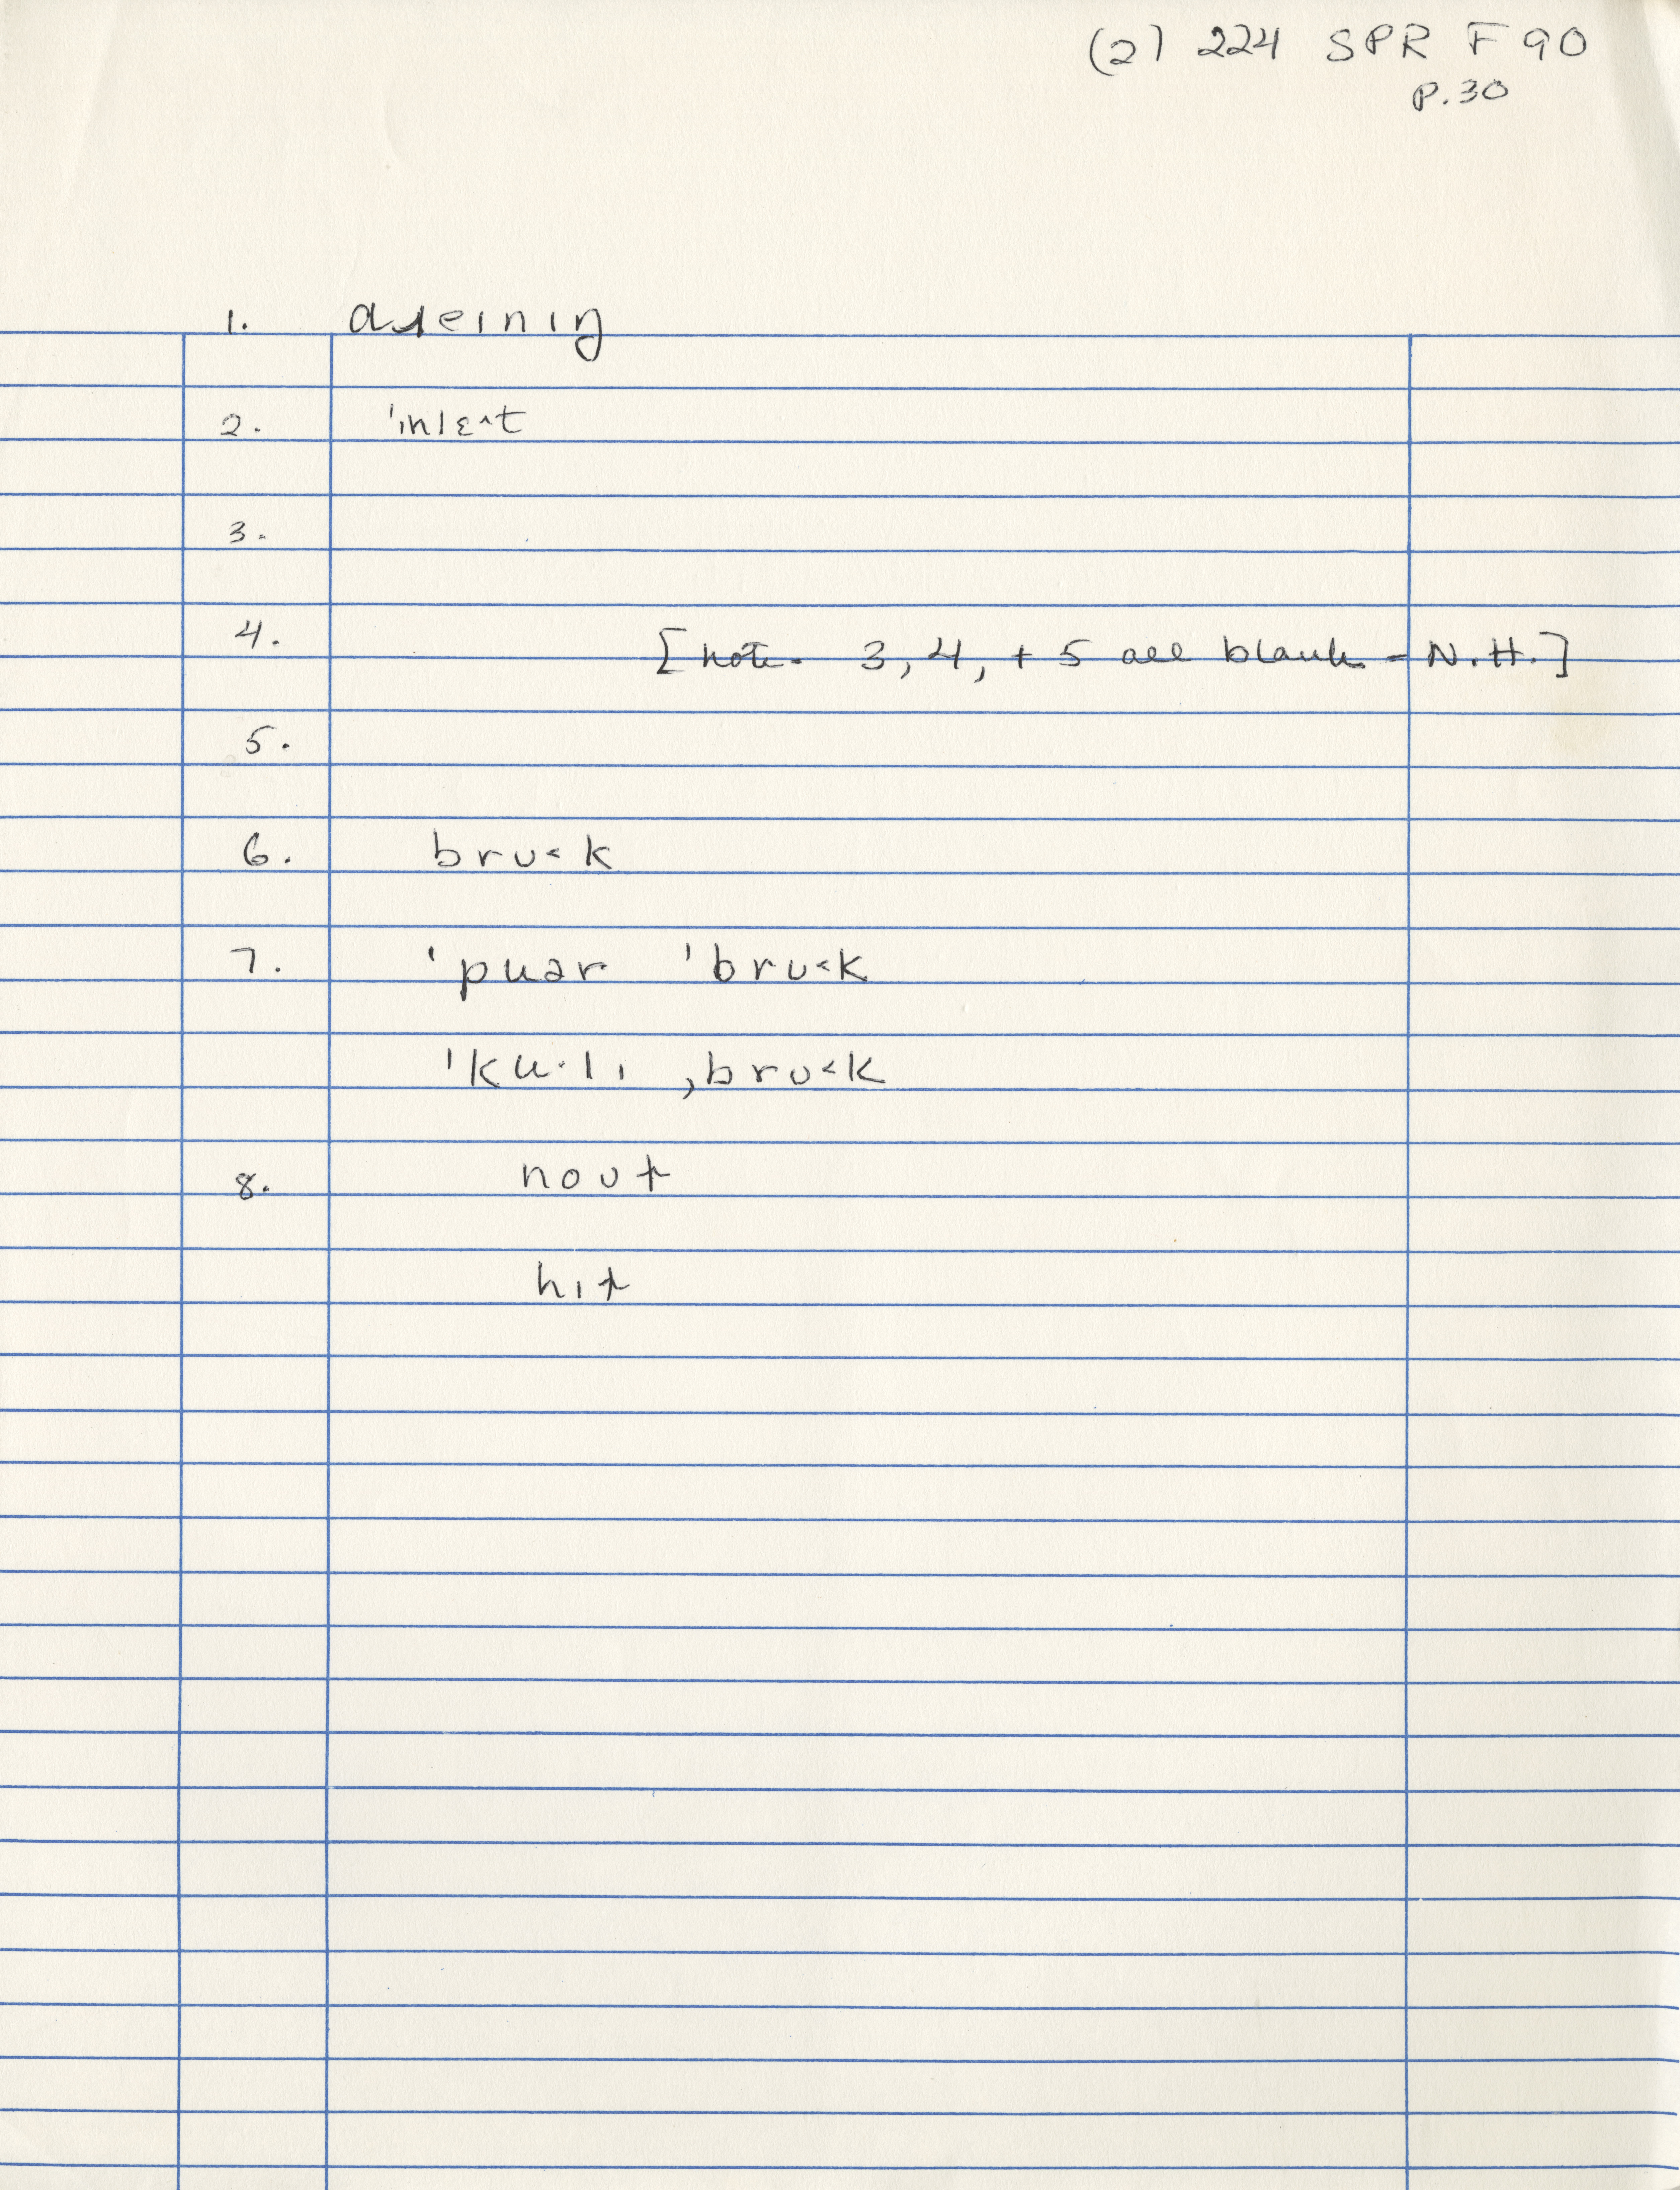 (2) 224 SPR F 90
P.30
1. dɹeɪnɪŋ
2. ˈɪnlɛ˄t
3.
4. [note - 3, 4, + 5 all blank - N.H.]
5.
6. brʊ˂k
7. ˈpuər ˈbrʊ˂k
ˈku·lɪ ˌbrʊ˂k
8. noʊt
hɪt